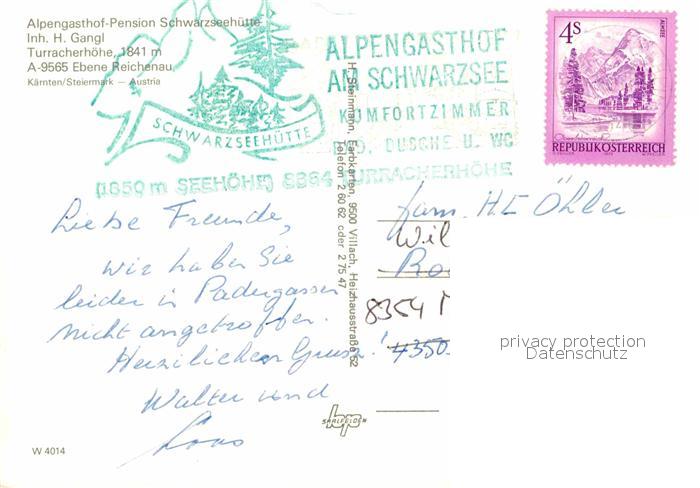 Alpengasthof-Pension Schwarzseehütte
Inh. H. Gangl
Turracherhöhe, 1841 m
A-9565 Ebene Reichenau
Kärnten/Steiermark — Austria
SCHWARZSEEHÜTTE
ALPENGASTHOF
AM SCHWARZSEE
KOMFORTZIMMER
DUSCHE U. WC
(1850 m SEEHÖHE) 8864 TURRACHERHÖHE
4s
ALMSEE
REPUBLIK ÖSTERREICH
Liebe Freunde,
wir haben Sie
leider in Patergassen
nicht angetroffen.
Herzlichen Gruss!
Walter und
H. Steinmann, Farbkarten, 9500 Villach, Heizhausstraße 62
Telefon 2 60 62 oder 2 75 47
Fam. HE Öhler
Wil
Ro
8354
4350
privacy protection
Datenschutz
SAALFELDEN
W 4014